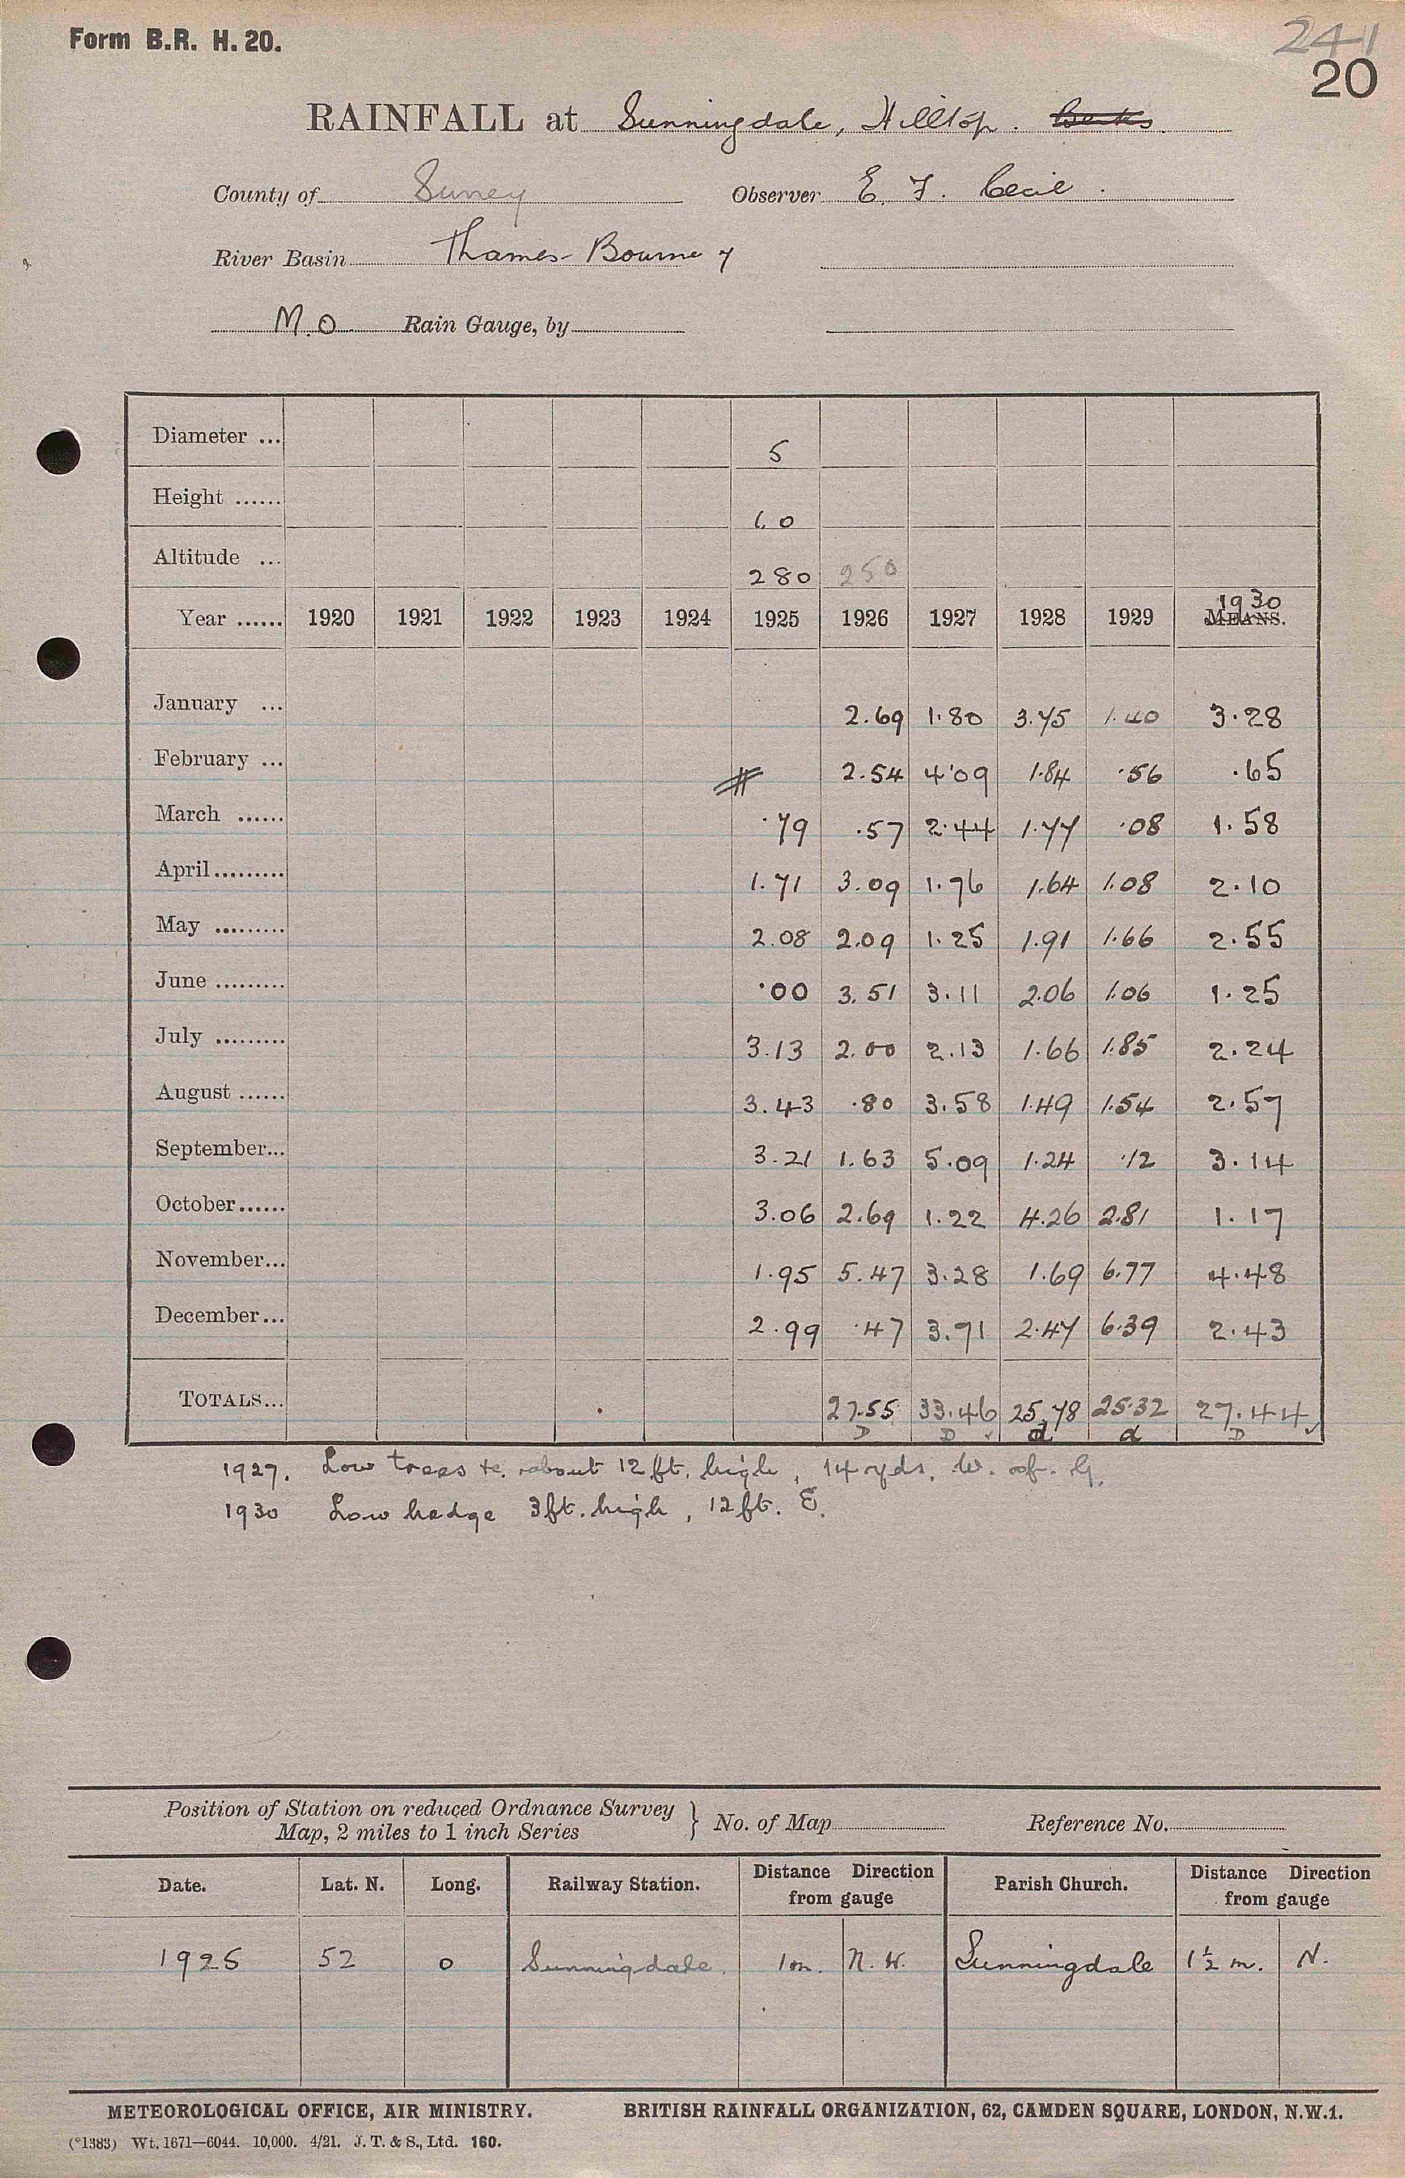 Form B.R. H. 20.
241
20
RAINFALL at Sunningdale, Hilltop. Berks
County of Surrey Observer E. F. Cecil.
River Basin Thames - Bourne
M.O Rain Gauge, by
Diameter ... 5
Height ...... 1.0
Altitude ... 280 250
Year ...... 1920 1921 1922 1923 1924 1925 1926 1927 1928 1929 MEANS. 1930
January ... 2.69 1.80 3.75 1.40 3.28
February ... 2.54 4.09 1.84 .56 .65
March ...... .79 .57 2.44 1.77 .08 1.58
April......... 1.71 3.09 1.76 1.64 1.08 2.10
May ......... 2.08 2.09 1.25 1.91 1.66 2.55
June ......... .00 3.51 3.11 2.06 1.06 1.25
July ......... 3.13 2.00 2.13 1.66 1.85 2.24
August ...... 3.43 .80 3.58 1.49 1.54 2.57
September... 3.21 1.63 5.09 1.24 .12 3.14
October...... 3.06 2.69 1.22 4.26 2.81 1.17
November... 1.95 5.47 3.28 1.69 6.77 4.48
December... 2.99 .47 3.71 2.47 6.39 2.43
TOTALS... 27.55 33.46 25.78 25.32 27.44
D D d d D
1927. Low trees &c. about 12 ft. high, 14 yds. W. of. G.
1930 Low hedge 3ft. high, 12ft. E.
Position of Station on reduced Ordnance Survey
Map, 2 miles to 1 inch Series } No. of Map Reference No.
Date. Lat. N. Long. Railway Station. Distance Direction from gauge Parish Church. Distance Direction from gauge
1925 52 0 Sunningdale. 1m. N.W. Sunningdale 1½ m. N.
METEOROLOGICAL OFFICE, AIR MINISTRY. BRITISH RAINFALL ORGANIZATION, 62, CAMDEN SQUARE, LONDON, N.W.1.
(*1383) Wt. 1671—6044. 10,000. 4/21. J. T. & S., Ltd. 160.